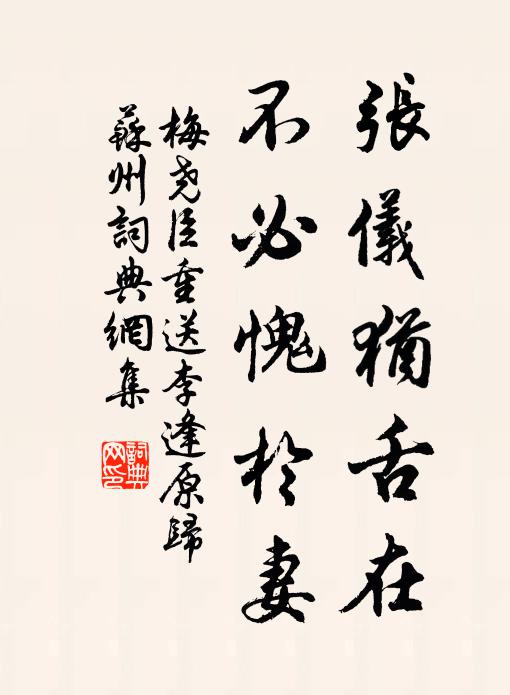 張儀猶舌在
不必愧於妻
梅堯臣重送李逢原歸
蘇州詞典網集
詞典網印